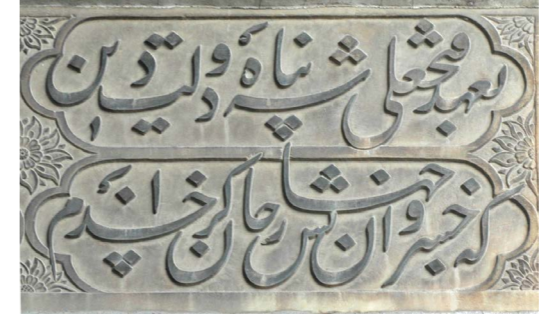 بعهد فتحعلی شه پناه دولت و دین
که خسروان جهانش ز چاکران خدم اند